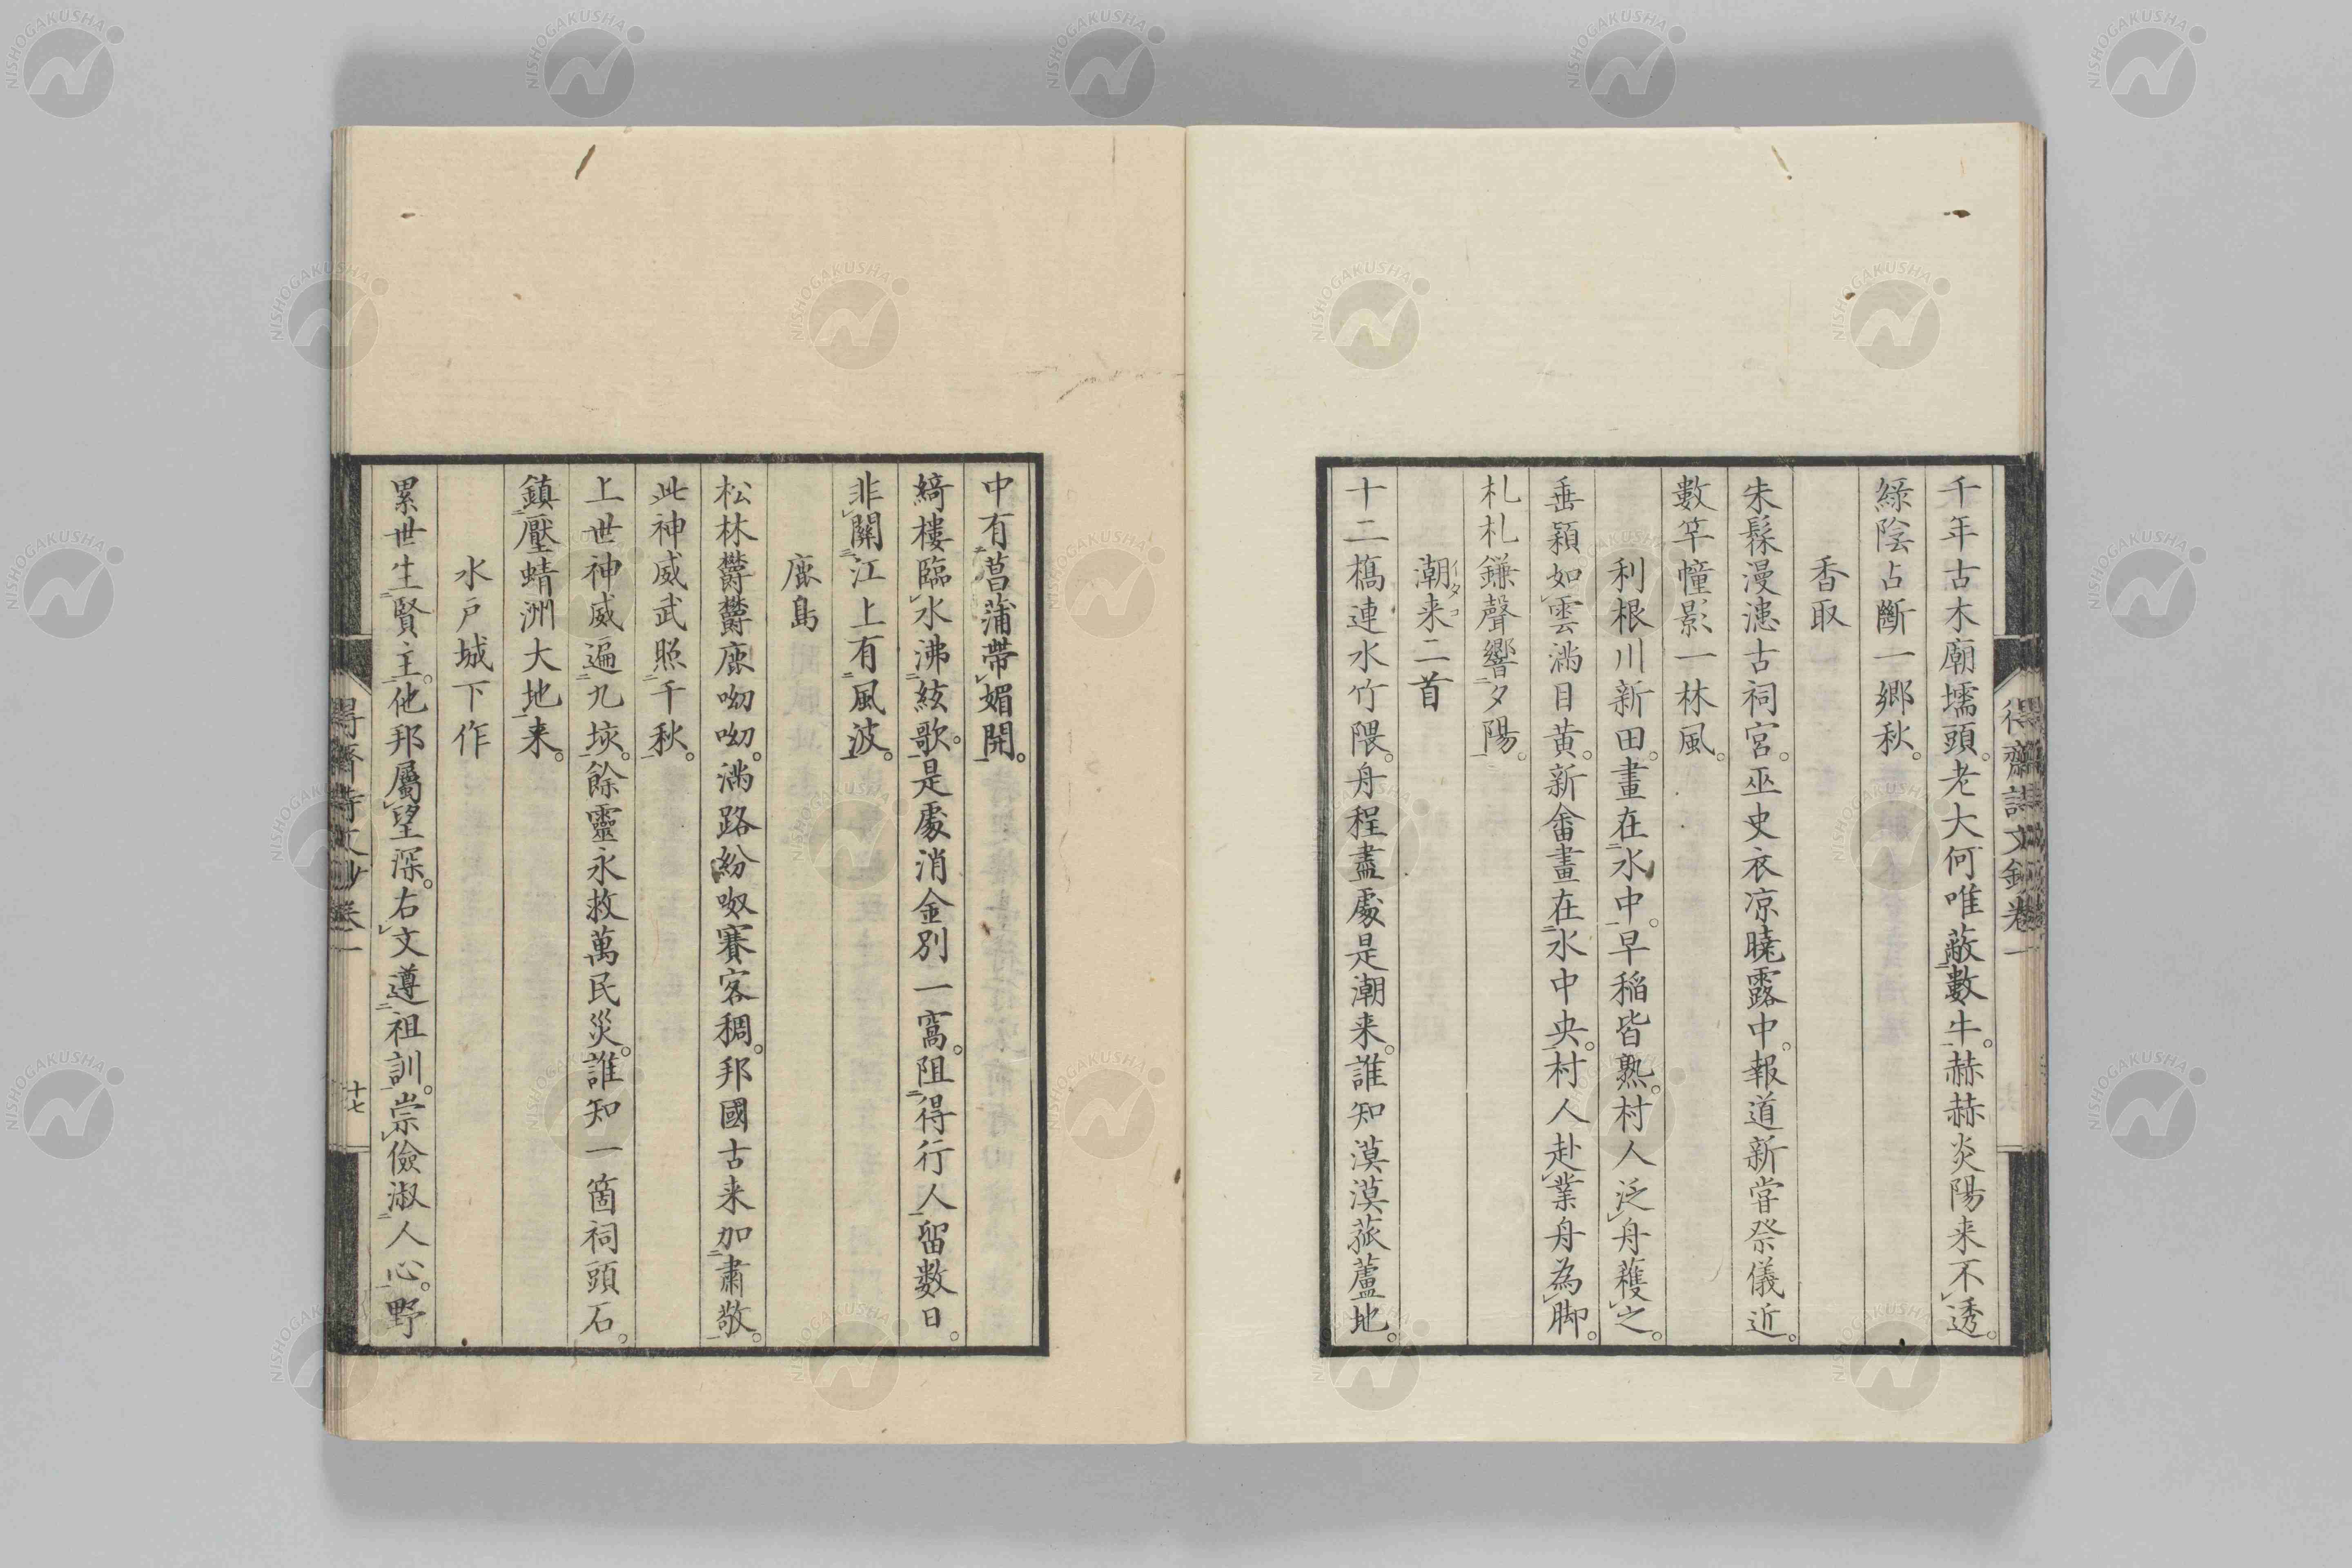 千年古木廟壖頭。老大何唯蔽數牛。赫赫炎陽来不透。
綠陰占斷一鄉秋。
香取
朱髹漫漶古祠宮。巫史衣凉曉露中。報道新甞祭儀近。
數竿幢影一林風。
利根川新田。畫在水中。早稲皆熟。村人泛舟穫之。
垂穎如雲滿目黃。新畬畫在水中央。村人赴業舟為脚。
札札鎌聲響夕陽。
潮来二首
イタコ
十二橋連水竹隈。舟程盡處是潮来。誰知漠漠菰蘆地。
得齋詩文鈔卷一
中有菖蒲帶媚開。
綺樓臨水沸絃歌。是處消金別一窩。阻得行人留數日。
非關江上有風波。
鹿島
松林欝欝鹿呦呦。滿路紛呶賽客稠。邦國古来加肅敬。
此神威武照千秋。
上世神威遍九垓。餘靈永救萬民災。誰知一箇祠頭石。
鎮壓蜻洲大地来。
水戸城下作
累世生賢主。他邦屬望深。右文遵祖訓。崇儉淑人心。野
得齋詩文鈔卷一
十七
NISHOGAKUSHA